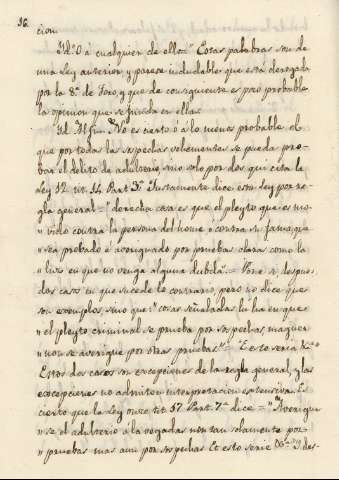 16.
cion.
Yd. O á cualquier de ellos = Estas palabras son de
una ley anterior, y parese indudable que está derogada
por la 8.ª de Foro, y que de consiguiente es mas probable
la opinion que se funda en ella.
Yd. Al fin. No es cierto ó a lo menos probable el
que por todas las sospechas vehementes se pueda pro-
bar el delito de adulterio sino solo por dos que cita la
ley 12 tit. 14 Part. 3.ª Justamente dice esta ley por re-
gla general = "derecha cosa es que el pleyto que es mo-
" vido contra la persona del home ó contra su fama, que
" sea probado é averiguado por pruebas claras como la
" luz en que no venga alguna dubda" = Pone si despues
dos casos en que sucede lo contrario, pero no dice que
son exemplos, sino que: " cosas señaladas hi ha en que
" el pleyto criminal se prueba por sospechas, maguer
" non se averigue por otras pruebas" = E esto seria &.ª =
Estos dos casos son excepciones de la regla general, y las
excepciones no admiten interpretacion extensiva. Es
cierto que la Ley once tit. 17 Part. 7.ª dice = "Averigua-
" se el adulterio á la vegadas non tan solamente por
" pruebas mas aun por sospechas Et esto serie &.ª Y des-